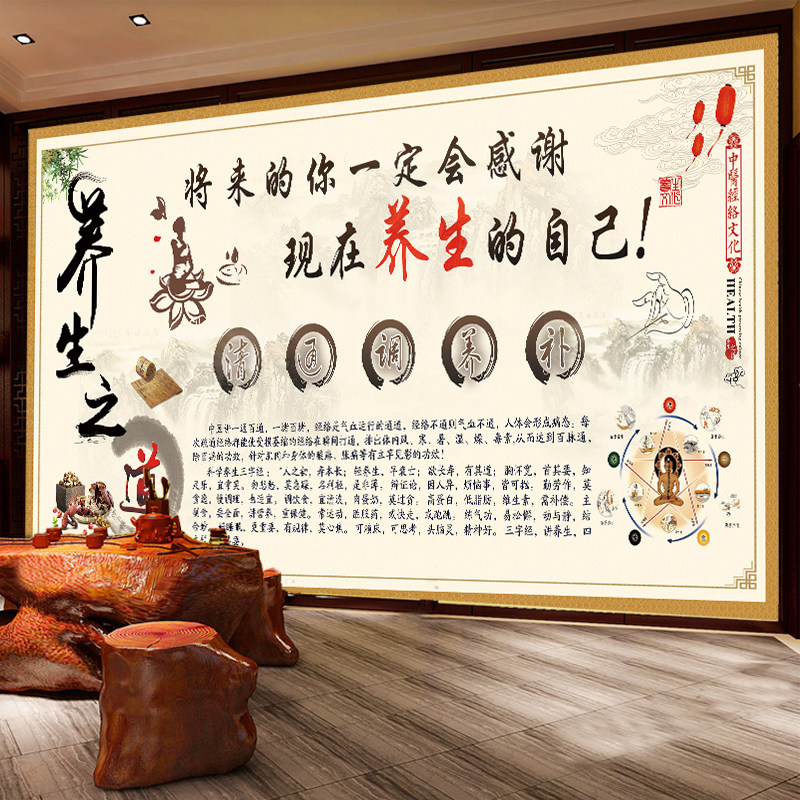 养生之道
将来的你一定会感谢
现在养生的自己!
清 通 调 养 补
中醫經絡文化
HEALTH
中医讲一通百通，一堵百堵，经络是气血运行的通道，经络不通则气血不通，人体会形成病态；每
次疏通经络都能使受损萎缩的经络在瞬间打通，排出体内风、寒、暑、湿、燥、毒素，从而达到百脉通，
除百病的功效，针对肌肉和身体的酸痛、胀痛等有立竿见影的功效！
科学养生三字经：“人之初，寿本长；轻养生，早衰亡；欲长寿，有其道；胸怀宽，首其要，知
足乐，宜常笑。勿愁愁，莫急躁，名利轻，是非薄，辩证论，因人异，烦恼事，皆可抛，勤劳作，莫
贪逸，慢调理，息适宜，调饮食，宜清淡，肉蛋奶，莫过贪；高蛋白，低脂肪，维生素，常补偿；主
要全面，讲营养，重保健。常运动，胜服药，或快走，或跑跳；练气功，易松懈，动与静，结
睡眠，更重要，有规律，莫心焦。可消灰，可思考，头脑灵，精神好。三字经，讲养生，四